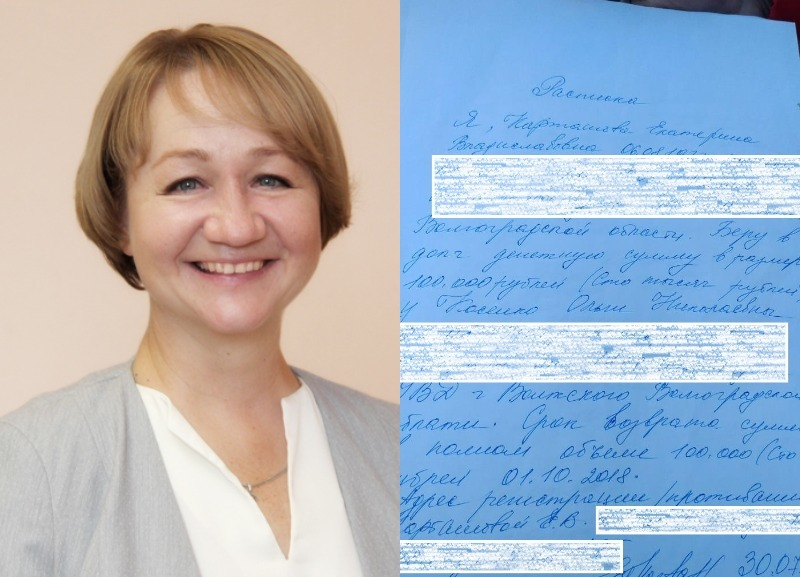 Расписка
Я, Карташова Екатерина
Владиславовна 06.08.
Волгоградской области. Беру в
долг денежную сумму в размер
100.000 рублей (Сто тысяч рублей)
у Косенко Ольги Николаевна
г Волжского Волгоградской
бласти. Срок возврата суммы
в полном объеме 100.000 (Сто
ублей 01.10.2018.
Адрес регистрации/проживания
арташовой Е.В.
30.07